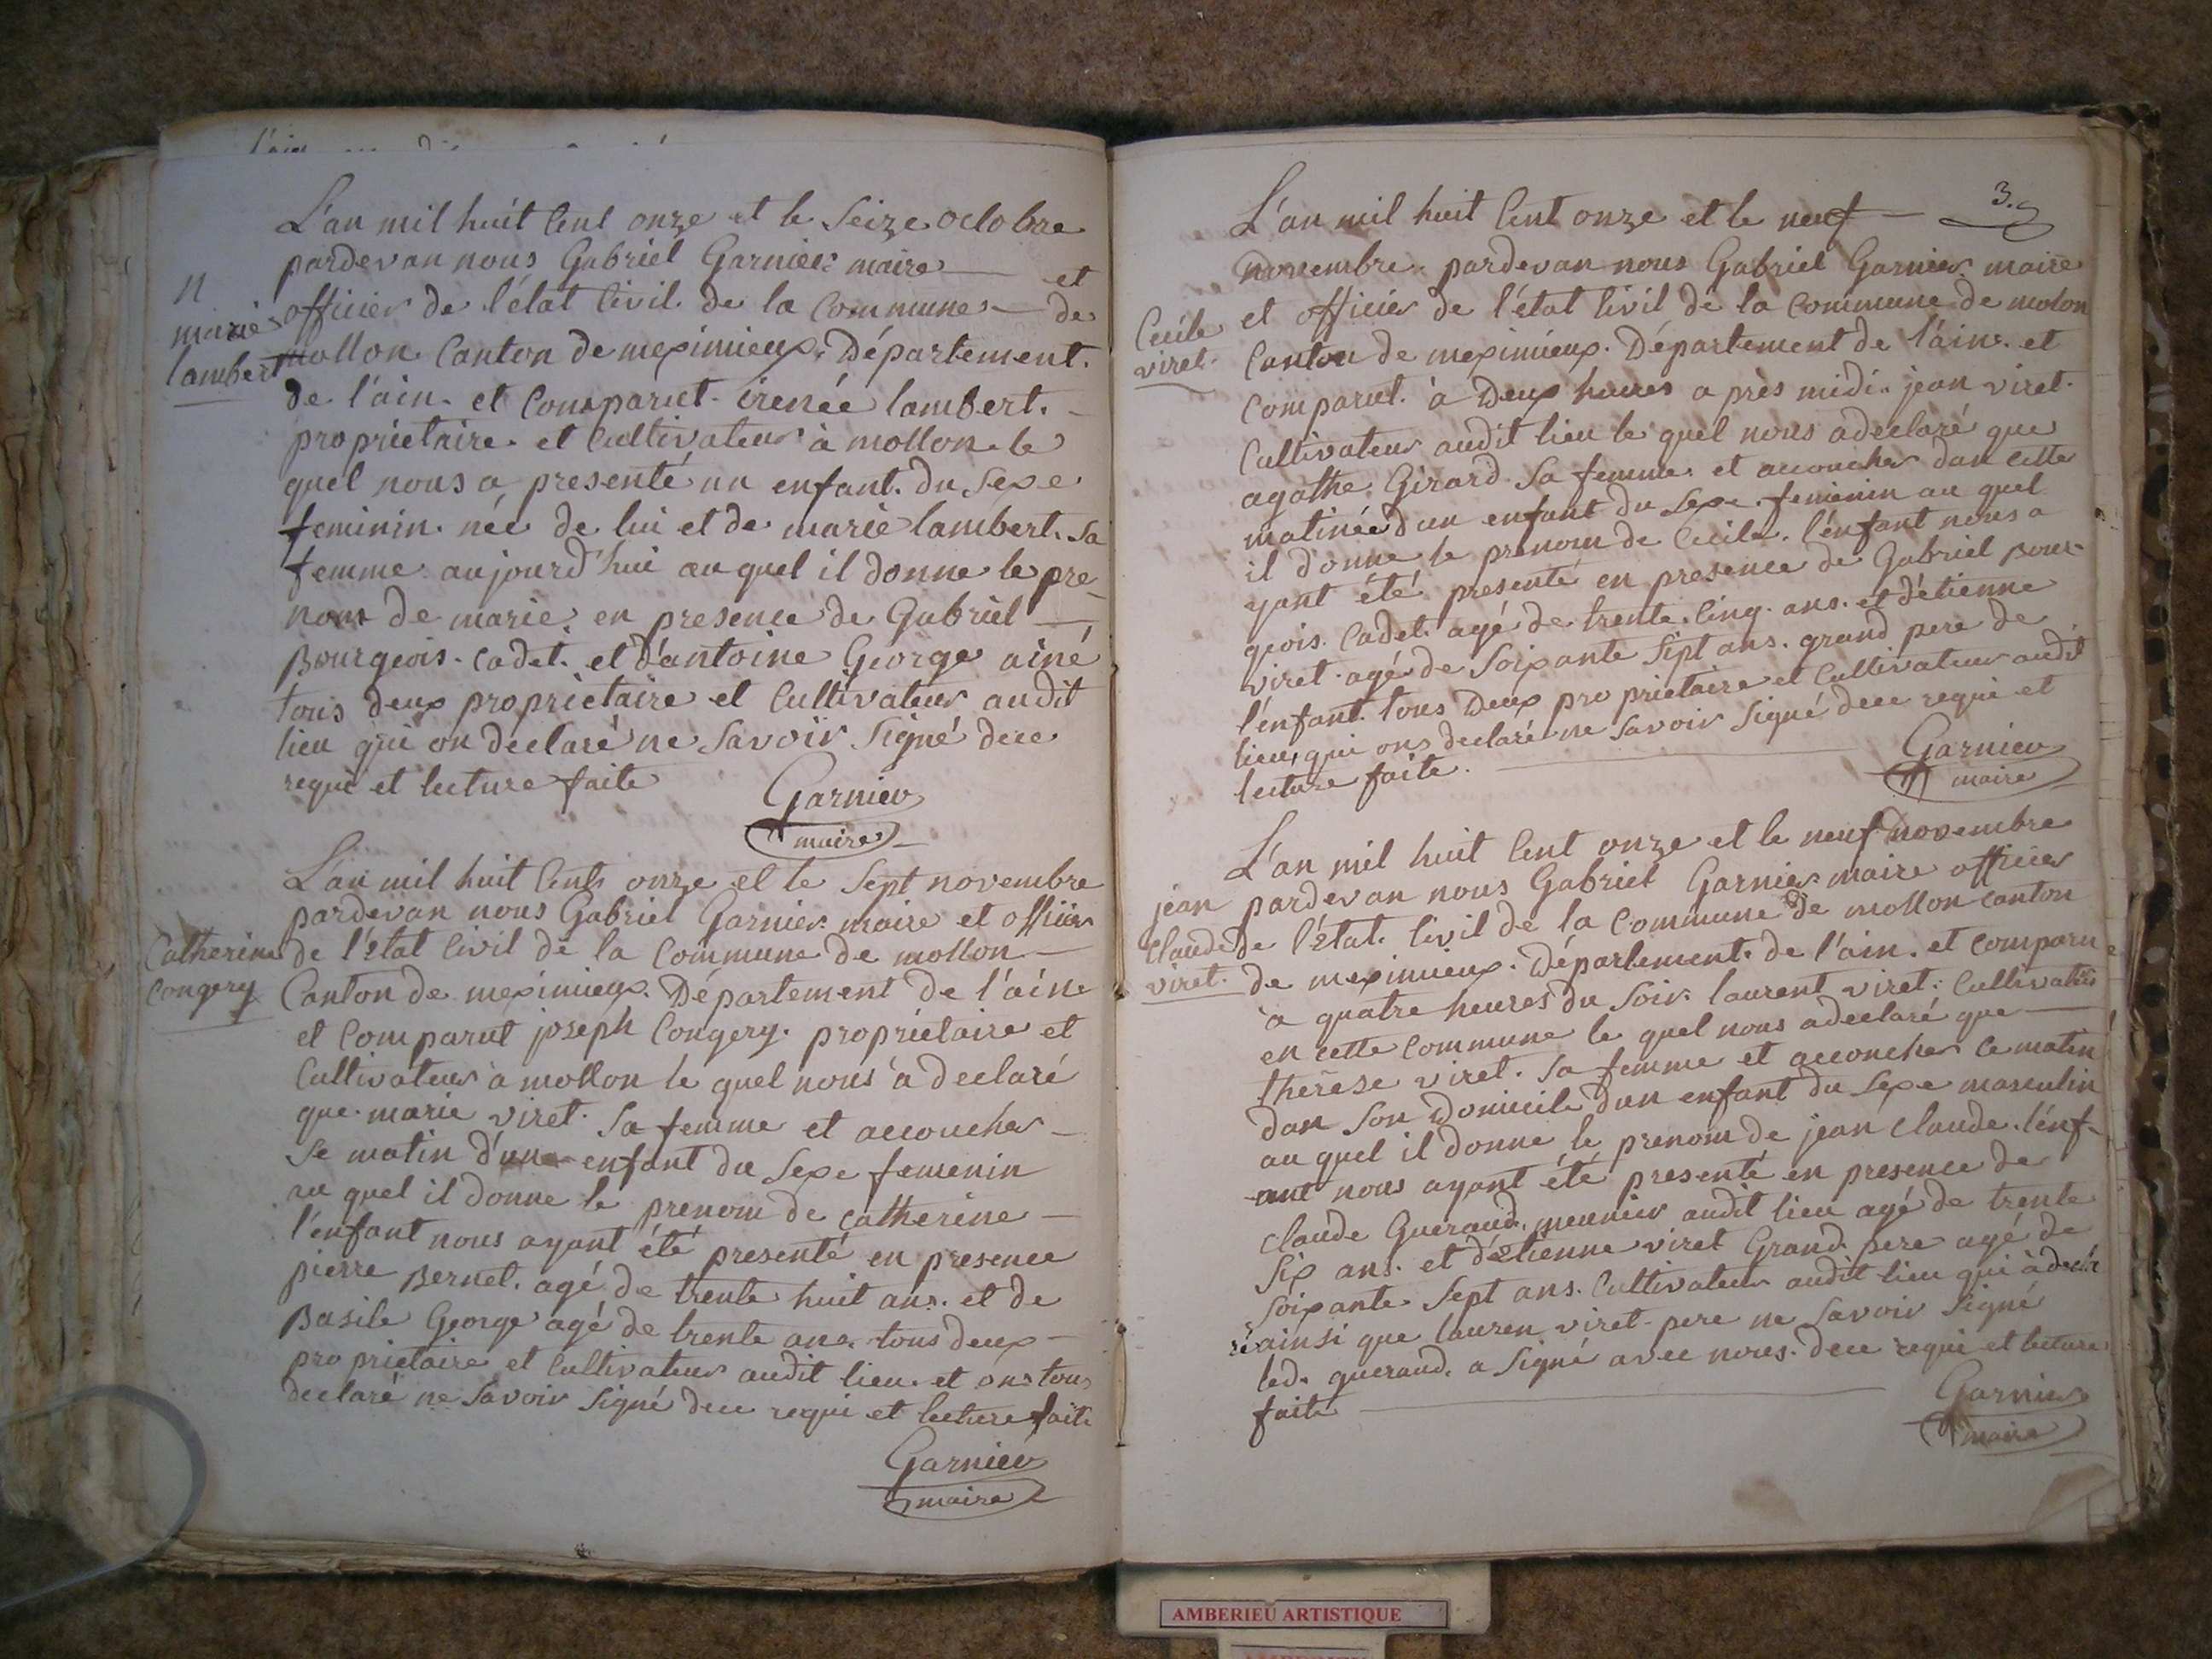 L'an mil huit Cent onze et le Seize octobre
pardevan nous Gabriel Garnier maire — et
officier de l'état Civil de la Commune — de
mollon Canton de meximieux. Département.
de l'ain. et Comparut. irenée lambert. —
proprietaire. et Cultivateur à mollon. le
quel nous a presenté un enfant. du Sexe
feminin. née de lui et de marie lambert. Sa
femme aujourd'hui au quel il donne le pre-
nom de marie en presence de Gabriel —
Bourgeois. Cadet. et d'antoine George ainé
tous deux proprietaire et Cultivateur audit
lieu qui on declaré ne Savoir Signé dece
requi et lecture faite
Garnier
maire
n
marie
lambert
L'an mil huit Cents onze et le Sept novembre
pardevan nous Gabriel Garnier maire et officier
de l'état Civil de la Commune de mollon —
Canton de meximieux. Département de l'ain
et Comparut joseph Congery. proprietaire et
Cultivateur à mollon le quel nous a declaré
que marie viret. Sa femme et accoucher —
Se matin d'une enfant du Sexe femenin
au quel il donne le prenom de Catherine —
l'enfant nous ayant été presenté en presence
pierre Bernet. agé de trente huit ans. et de
Basile George agé de trente ans. tous deux —
proprietaire et Cultivateur audit lieu. et ons tous
declaré ne Savoir Signé dece requi et lecture faite
Garnier
maire
Catherine
Congery
3.
L'an mil huit Cent onze et le neuf —
novembre. pardevan nous Gabriel Garnier maire
et officier de l'état Civil de la Commune de molon
Canton de meximieux. Département de l'ain. et
Comparut. à Deux heures après midi. jean viret.
Cultivateur audit lieu le quel nous a declaré que
agathe Girard Sa femme. et accoucher dan cette
matinée d'un enfant du Sexe. femenin au quel
il donne le prenom de Cecile. l'enfant nous a
yant été presenté en presence de Gabriel Bour-
geois. Cadet. agé de trente. Cinq. ans. et d'étienne
viret. agé de Soixante Sept ans. grand pere de
l'enfant. tous Deux proprietaire et Cultivateur audit
lieu, qui ons declaré ne Savoir Signé dece requi et
lecture faite.
Garnier
maire
Cecile
viret.
L'an mil huit Cent onze et le neuf novembre
pardevan nous Gabriel Garnier maire officier
de l'état. Civil de la Commune de mollon canton
de meximieux. Département. de l'ain. et Comparu
à quatre heures du Soir. laurent viret. Cultivateur
en cette Commune le quel nous a declaré que —
therese viret. Sa femme et accoucher Ce matin
dan Son Domicile d'un enfant du Sexe masculin
au quel il donne le prenom de jean Claude. l'enf-
-ant nous ayant été presenté en presence de
Claude Gueraud. meunier audit lieu agé de trente
Six ans. et d'étienne viret Grand. pere agé de
Soixante Sept ans. Cultivateur audit lieu qui à decla
ré ainsi que lauren viret pere ne Savoir Signé
led. gueraud. a Signé avec nous. dece requi et lecture
faite
Garnier
maire
jean
Claude
viret.
AMBERIEU ARTISTIQUE